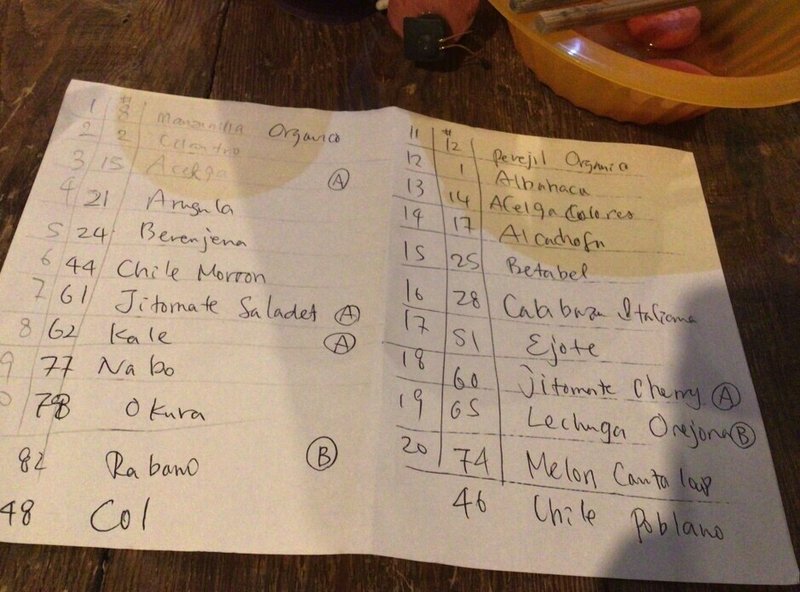 1 #8 Manzanilla Organico
2 2 Cilantro
3 15 Acelga Ⓐ
4 21 Arugula
5 24 Berenjena
6 44 Chile Morron
7 61 Jitomate Saladet Ⓐ
8 62 Kale Ⓐ
9 77 Nabo
0 78 Okura
82 Rabano Ⓑ
48 Col
11 #12 perejil Organico
12 1 Albahaca
13 14 Acelga Colores
14 17 Alcachofa
15 25 Betabel
16 28 Calabaza Italiana
17 51 Ejote
18 60 Jitomate Cherry Ⓐ
19 65 Lechuga Orejona Ⓑ
20 74 Melon Cantaloup
46 Chile poblano